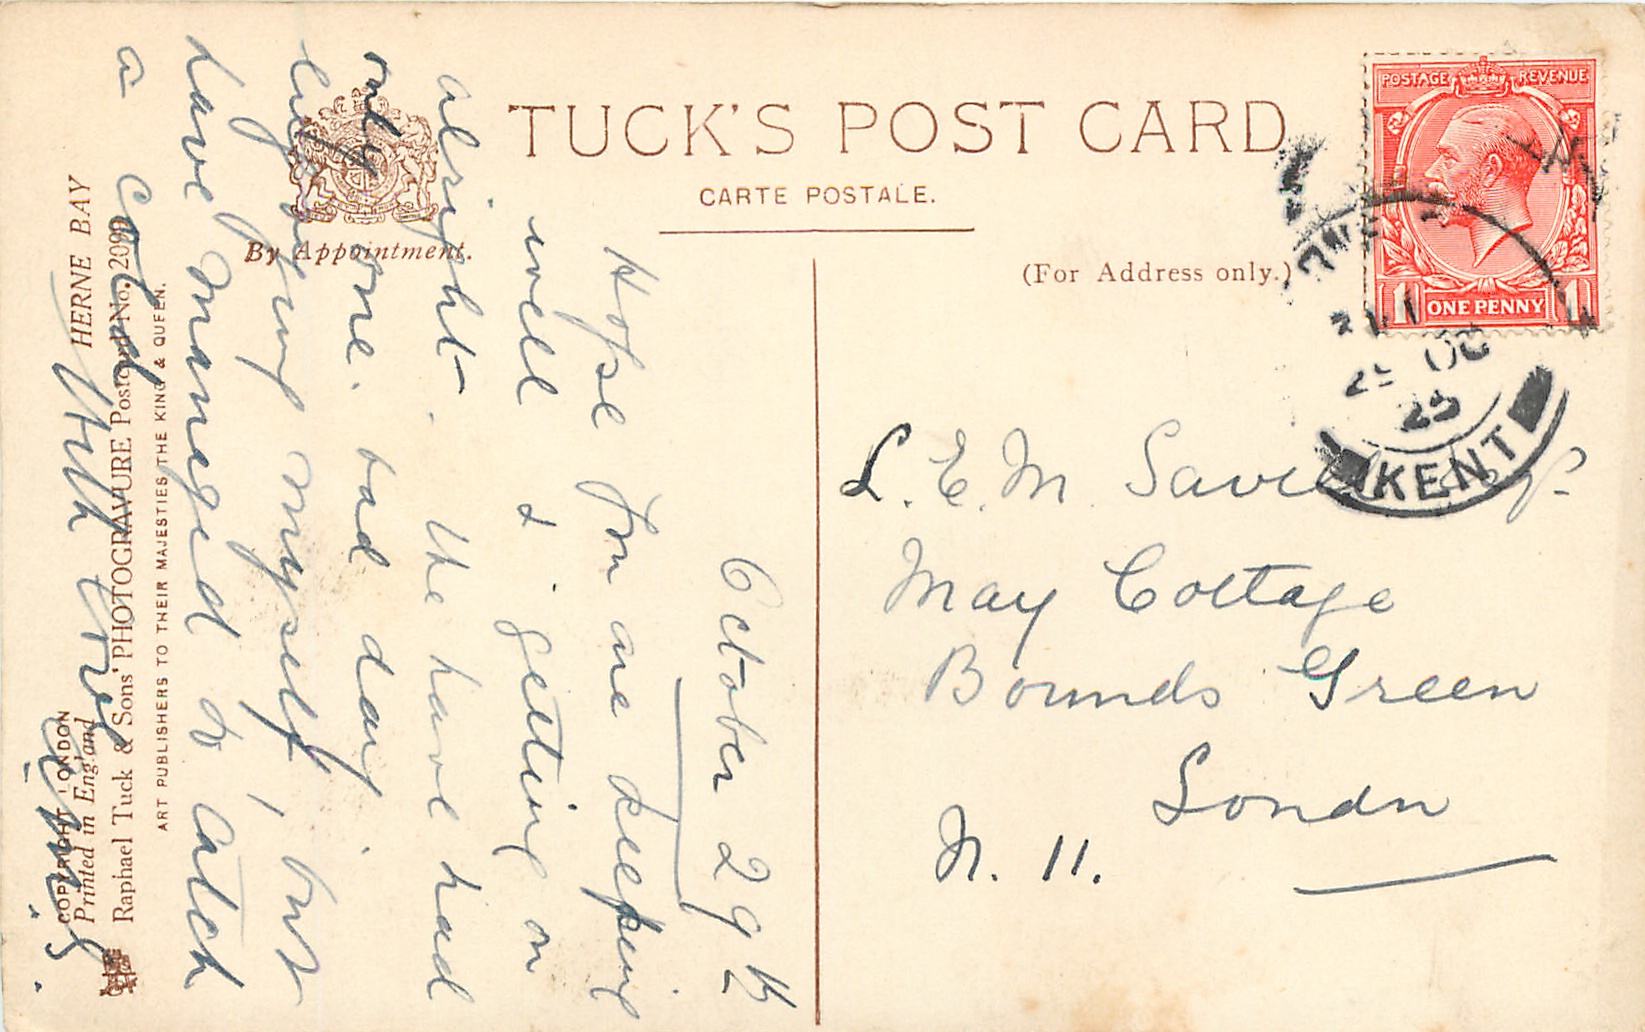 TUCK'S POST CARD
CARTE POSTALE.
(For Address only.)
By Appointment.
POSTAGE REVENUE
1 ONE PENNY 1
29 OC
25
KENT
L. E. M. Savill Esq.
May Cottage
Bounds Green
London
N. 11.
October 29th
Hope you are keeping
well & getting on
alright. We have had
only one bad day.
enjoying myself, but
have managed to catch
a cold
With love
HERNE BAY
Raphael Tuck & Sons' PHOTOGRAVURE Postcard No. 2090
ART PUBLISHERS TO THEIR MAJESTIES THE KING & QUEEN.
COPYRIGHT LONDON
Printed in England